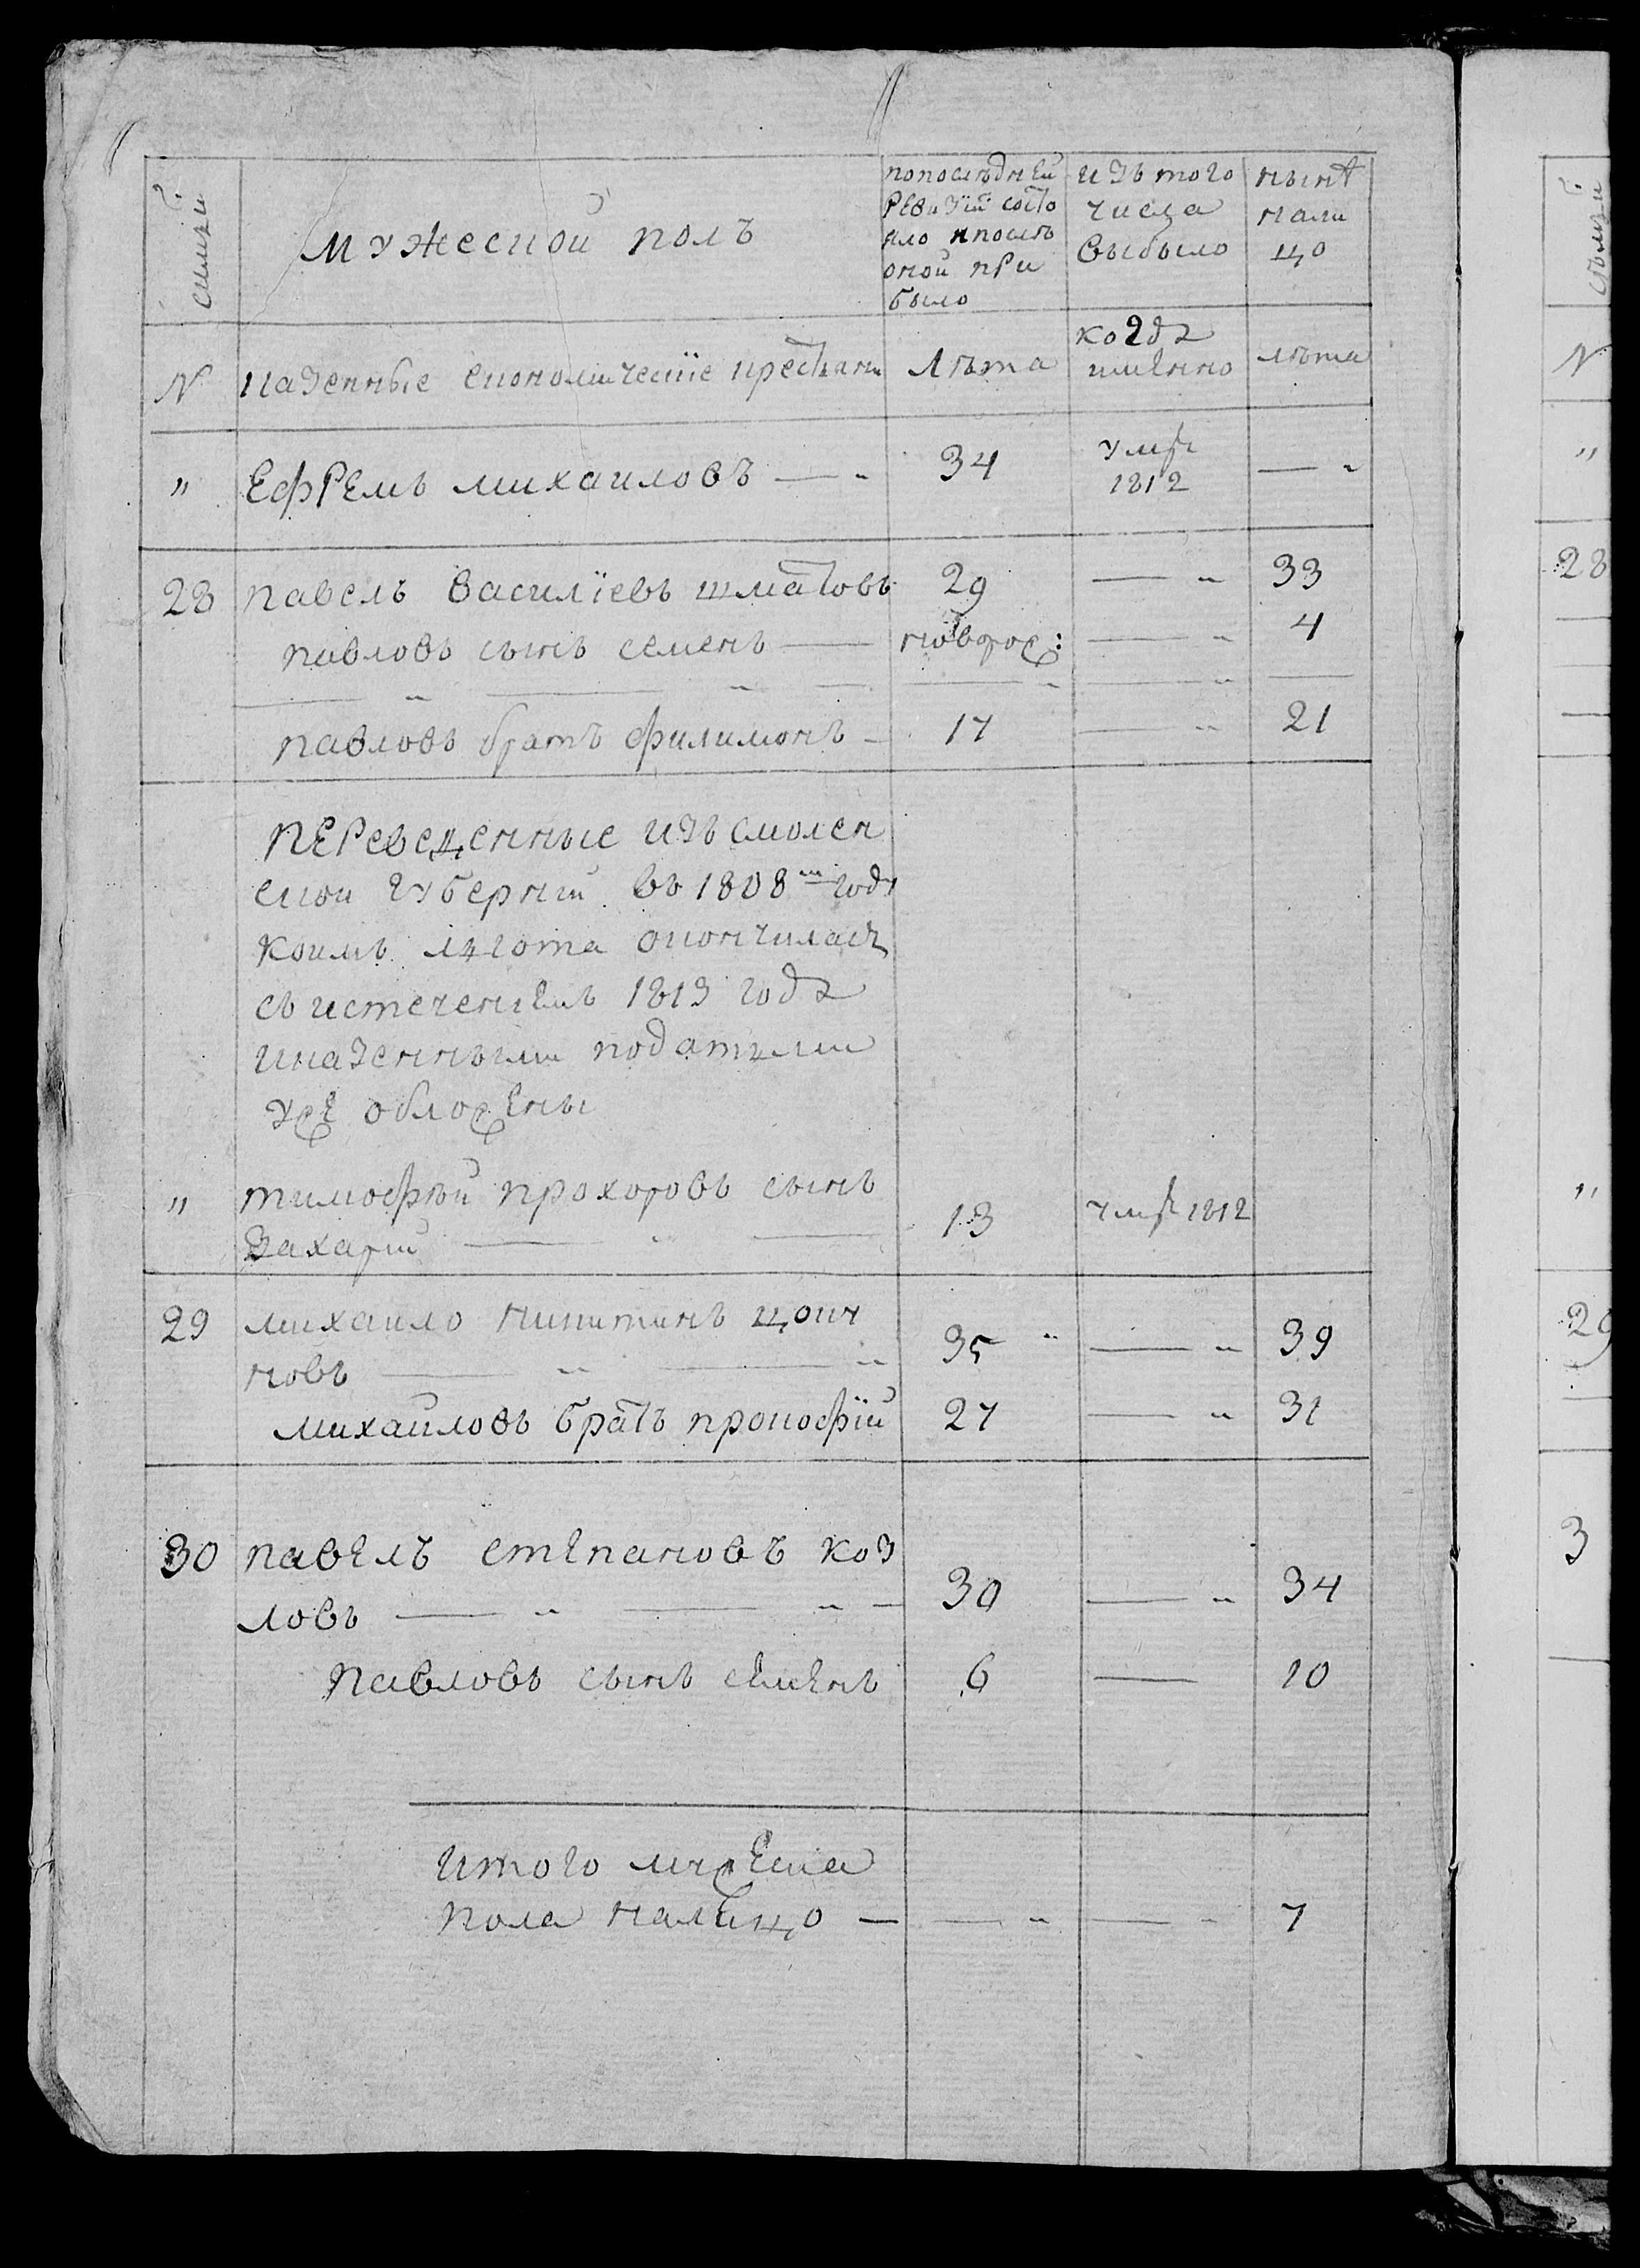 семьи
мужеской полъ
по последней
ревизiи состо
яло и после
оной при
было
изъ того
числа
выбыло
ныне
нали
цо
N казенные економическiе крестьяни
лѣта
когда
имянно
лѣта
" Ефремъ михаиловъ — " 34 умре 1812 — "
28 павелъ василiевъ шматовъ 29 — " 33
павловъ сынъ семенъ — новорож: — " 4
павловъ братъ филимонъ — 17 — " 21
переведенные изъ смолен
ской губернiи въ 1808 м году
коимъ лгота окончилась
съ истеченiемъ 1813 года
и казенными податьми
уже обложены
" тимофѣй прохоровъ сынъ
захарий — " — 13 умре 1812
29 михаило никитинъ
новъ — " — " 35 " — " 39
михайловъ братъ прокофiй 27 — " 31
30 павелъ степановъ коз
ловъ — " — " — 30 — " 34
павловъ сынъ семенъ 6 — 10
итого мужеска
пола налицо — — " — " 7
семьи
N
"
28
"
29
3